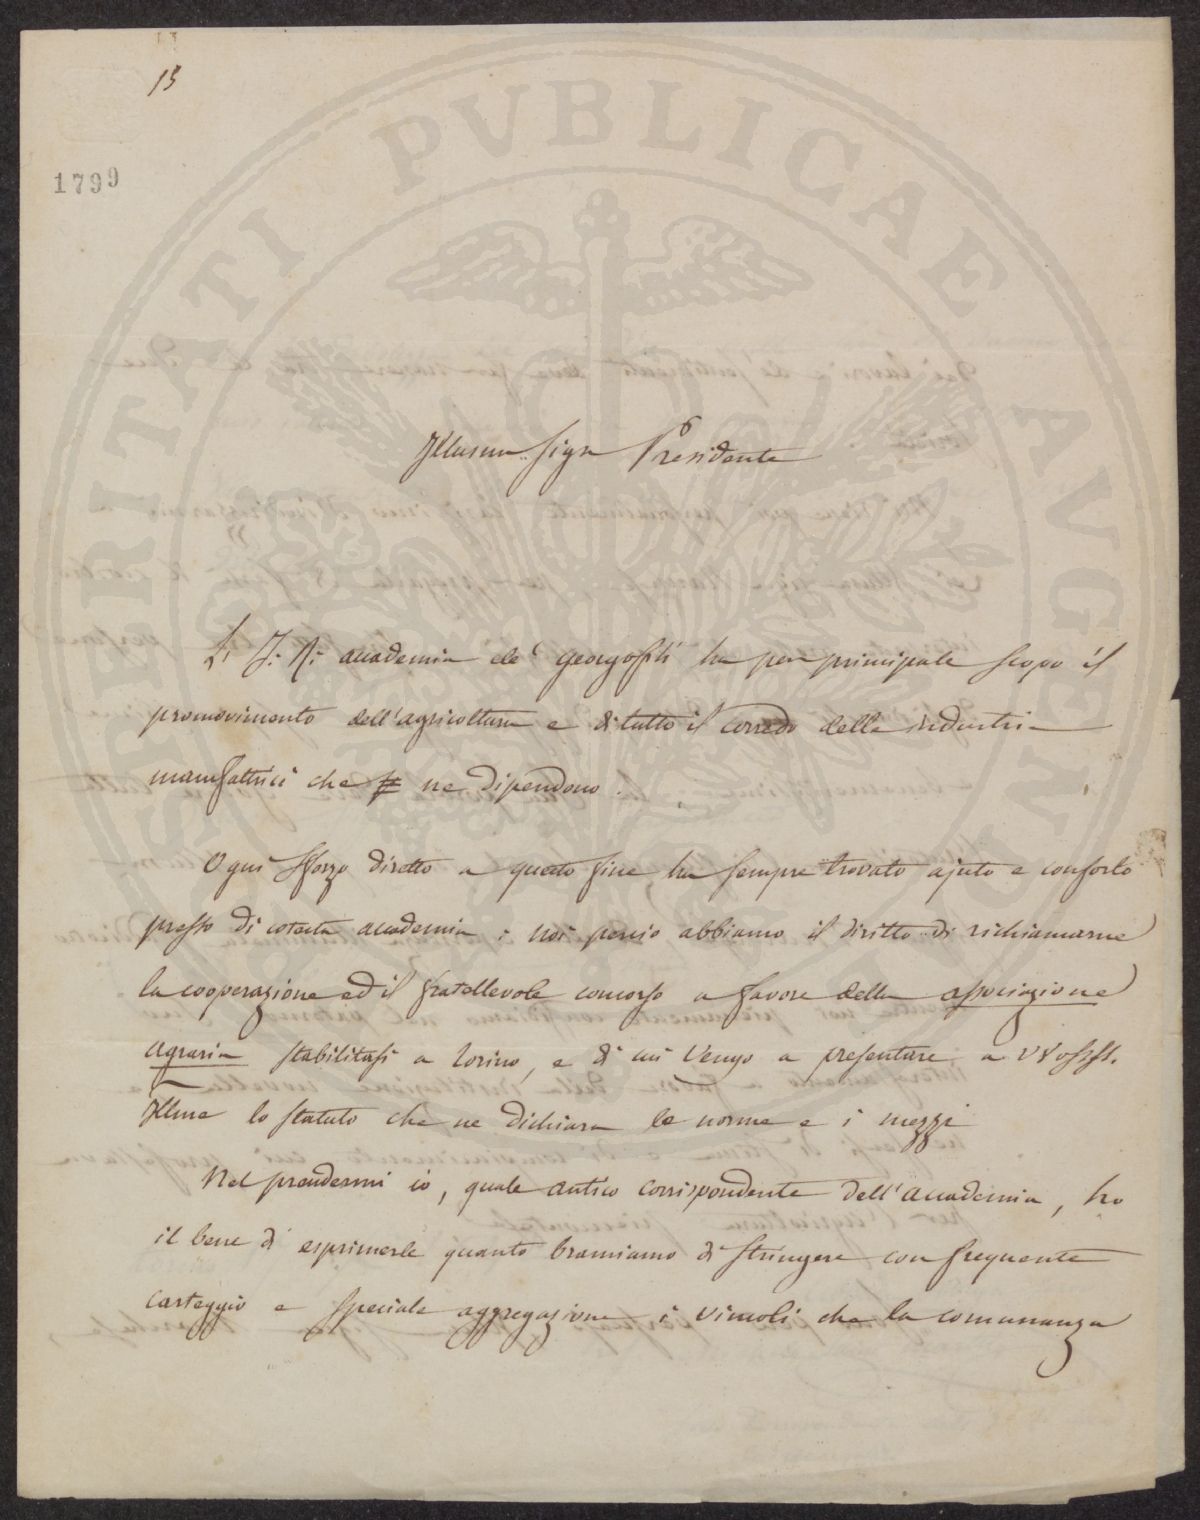 13
1799
PVBLICAE
Illusmo Sigr Presidente
L' I: R: accademia de' georgofili ha per principale scopo il
promovimento dell'agricoltura e di tutto il corredo delle industrie
manufattrici che ne dipendono.
Ogni sforzo diretto a questo fine, ha sempre trovato ajuto e conforto
presso di cotesta accademia; noi perciò abbiamo il diritto di richiamarne
la cooperazione ed il fratellevole concorso a favore della associazione
agraria stabilitasi a Torino, e di cui vengo a presentare a
Illma lo statuto che ne dichiara le norme e i mezzi
Nel prendermi io, quale antico corrispondente dell'accademia, ho
il bene di esprimerle quanto bramiamo di stringere con frequente
carteggio e speciale aggregazione i vincoli che la comunanza